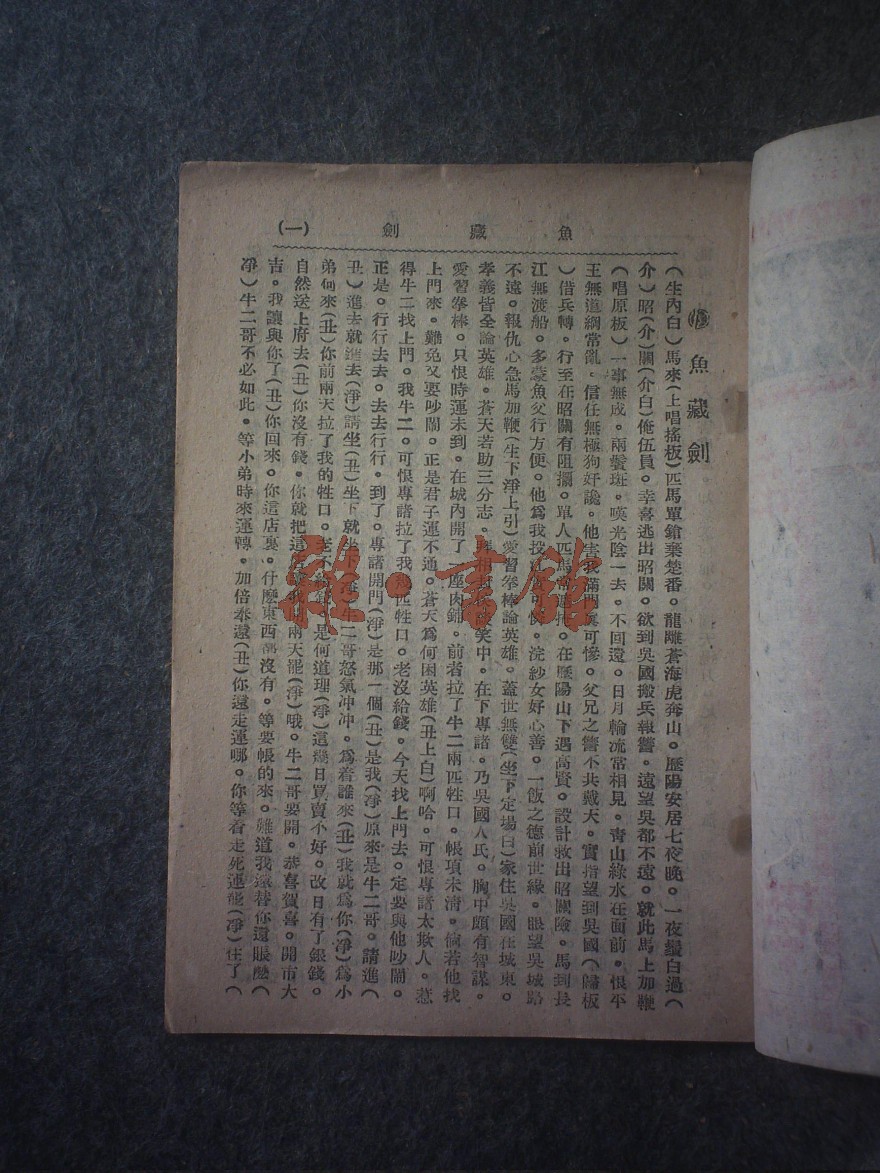 魚藏劍
(一)
魚藏劍
(生內白)馬來(上唱搖板)匹馬單鎗棄楚番。龍離蒼海虎奔山。歷陽安居七夜晚。一夜鬚白過(
介)昭(介)關(介白)俺伍員。幸喜逃出昭關。欲到吳國搬兵報讐。遠望吳都不遠。就此馬上加鞭
(唱原板)一事無成。兩鬢斑。嘆光陰一去。不回還。日月輪流常相見。青山綠水在面前。恨平
王無道綱常亂。信任無極狗奸讒。他害我滿門真可慘。父兄之讐不共戴天。實指望到吳國(
)借兵轉。行至在昭關有阻攔。單人匹馬常 在歷陽山下遇高賢。設計救出昭關險。馬到長
江無渡船。多蒙魚父行方便。他為我投江 浣紗女好心善。一飯之德前世緣。眼望吳城路
不遠。報仇心急馬加鞭(生下淨上引)愛習拳棒論英雄。蓋世無雙(坐下定場白)家住吳國在城東。
孝義皆全論英雄。蒼天若助三分志。 笑中。在下專諸。乃吳國人氏。胸中頗有智謀。
愛習拳棒。只恨時運未到。在城內開了一座肉鋪。前者拉了牛二兩匹牲口。帳項未清。倘若他找
上門來。難免又要吵鬧。正是君子運不通。蒼天為何困英雄(丑上白)啊哈。可恨專諸太欺人。惹
得牛二找上門。我牛二。可恨專諸拉了我 匹牲口。老沒給錢。今天找上門去。定要與他吵鬧。
正是。行行去去。去去行行。到了。專諸開門(淨)是那一個(丑)是我(淨)原來是牛二哥。請進(
丑)進去就進去(淨)請坐(丑)坐下就坐下(淨)牛二哥怒氣冲冲。為着誰來(丑)我就為你(淨)為小
弟何來(丑)你前兩天拉了我的牲口。老不給錢。是何道理(淨)這幾日買賣不好。改日有了銀錢。
自然送上府去(丑)你沒有錢。你就把這 兩天罷(淨)哦。牛二哥要開。恭喜賀喜。開市大
吉。我讓與你了(丑)你回來。你這店裏。什麼東西 沒有。等要帳的來。難道我還替你還賬麼(
淨)牛二哥不必如此。等小弟時來運轉。加倍奉還(丑)你還走運哪。你等着走死運罷(淨)住了(
雜·書館